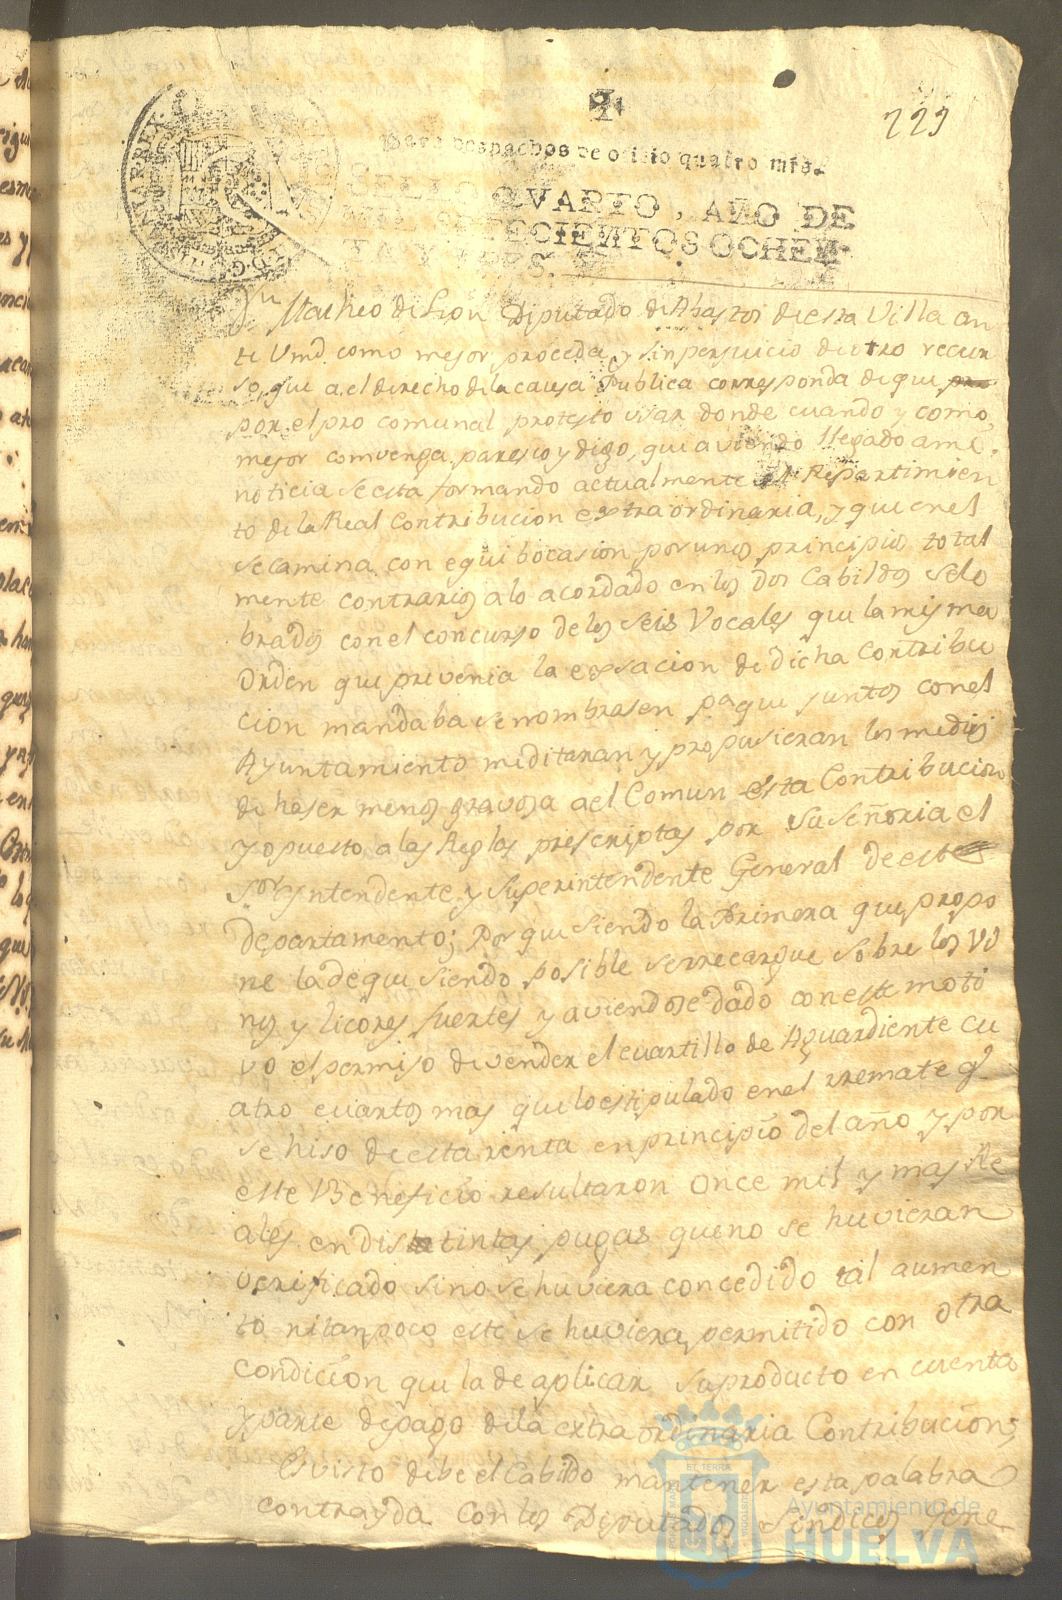 229
Para despachos de oficio quatro mrs.
SELLO QVARTO, AÑO DE
MIL SETECIENTOS OCHEN
TA Y TRES.
Dn Matheo de Leon Diputado de Abastos de esta Villa an
te Vmd como mejor proceda y sin perjuicio de otro recur
so, que a el derecho de la causa Publica corresponda de que
por el pro comunal protesto usar donde cuando y como
mejor comvenga paresco y digo, que aviendo llegado a mi
noticia se esta formando actualmente el Repartimien
to de la Real Contribucion extraordinaria, y que en el
se camina con equibocasion por unos principios total
mente contrarios a lo acordado en los dos Cabildos sele
brados con el concurso de los seis Vocales que la misma
Orden que prevenia la exsacion de dicha Contribu
cion mandaba se nombrasen pa que juntos con el
Ayuntamiento miditaran y propusieran los medios
de haser menos gravosa a el Comun esta Contribucion
y opuesto a las Reglas prescriptas por su Señoria el
Sor Yntendente y Superintendente General de este
departamento; Por que siendo la Primera que propo
ne la de que siendo posible se rrecargue sobre los Vi
nos y licores fuertes y aviendose dado con este moti
vo el permiso de vender el cuartillo de Aguardiente cu
atro cuartos mas que lo estipulado en el rremate qe
se hiso de esta renta en principio del año y por
este Beneficio resultaron once mil y mas Re
ales en distintas pugas que no se huvieran
verificado sino se huviera concedido tal aumen
to ni tanpoco este se huviera permitido con otra
condicion que la de aplicar su producto en cuenta
y parte de pago de la extraordinaria Contribucion;
Es visto debe el Cabildo mantener esta palabra
contrayda con los Diputados Sindicos Gene
Ayuntamiento de
HUELVA